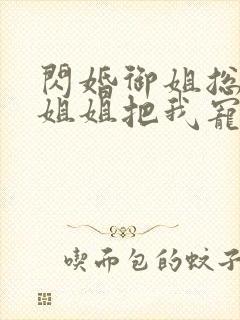 閃婚御姐总
姐姐把我寵
喫面包的蚊子